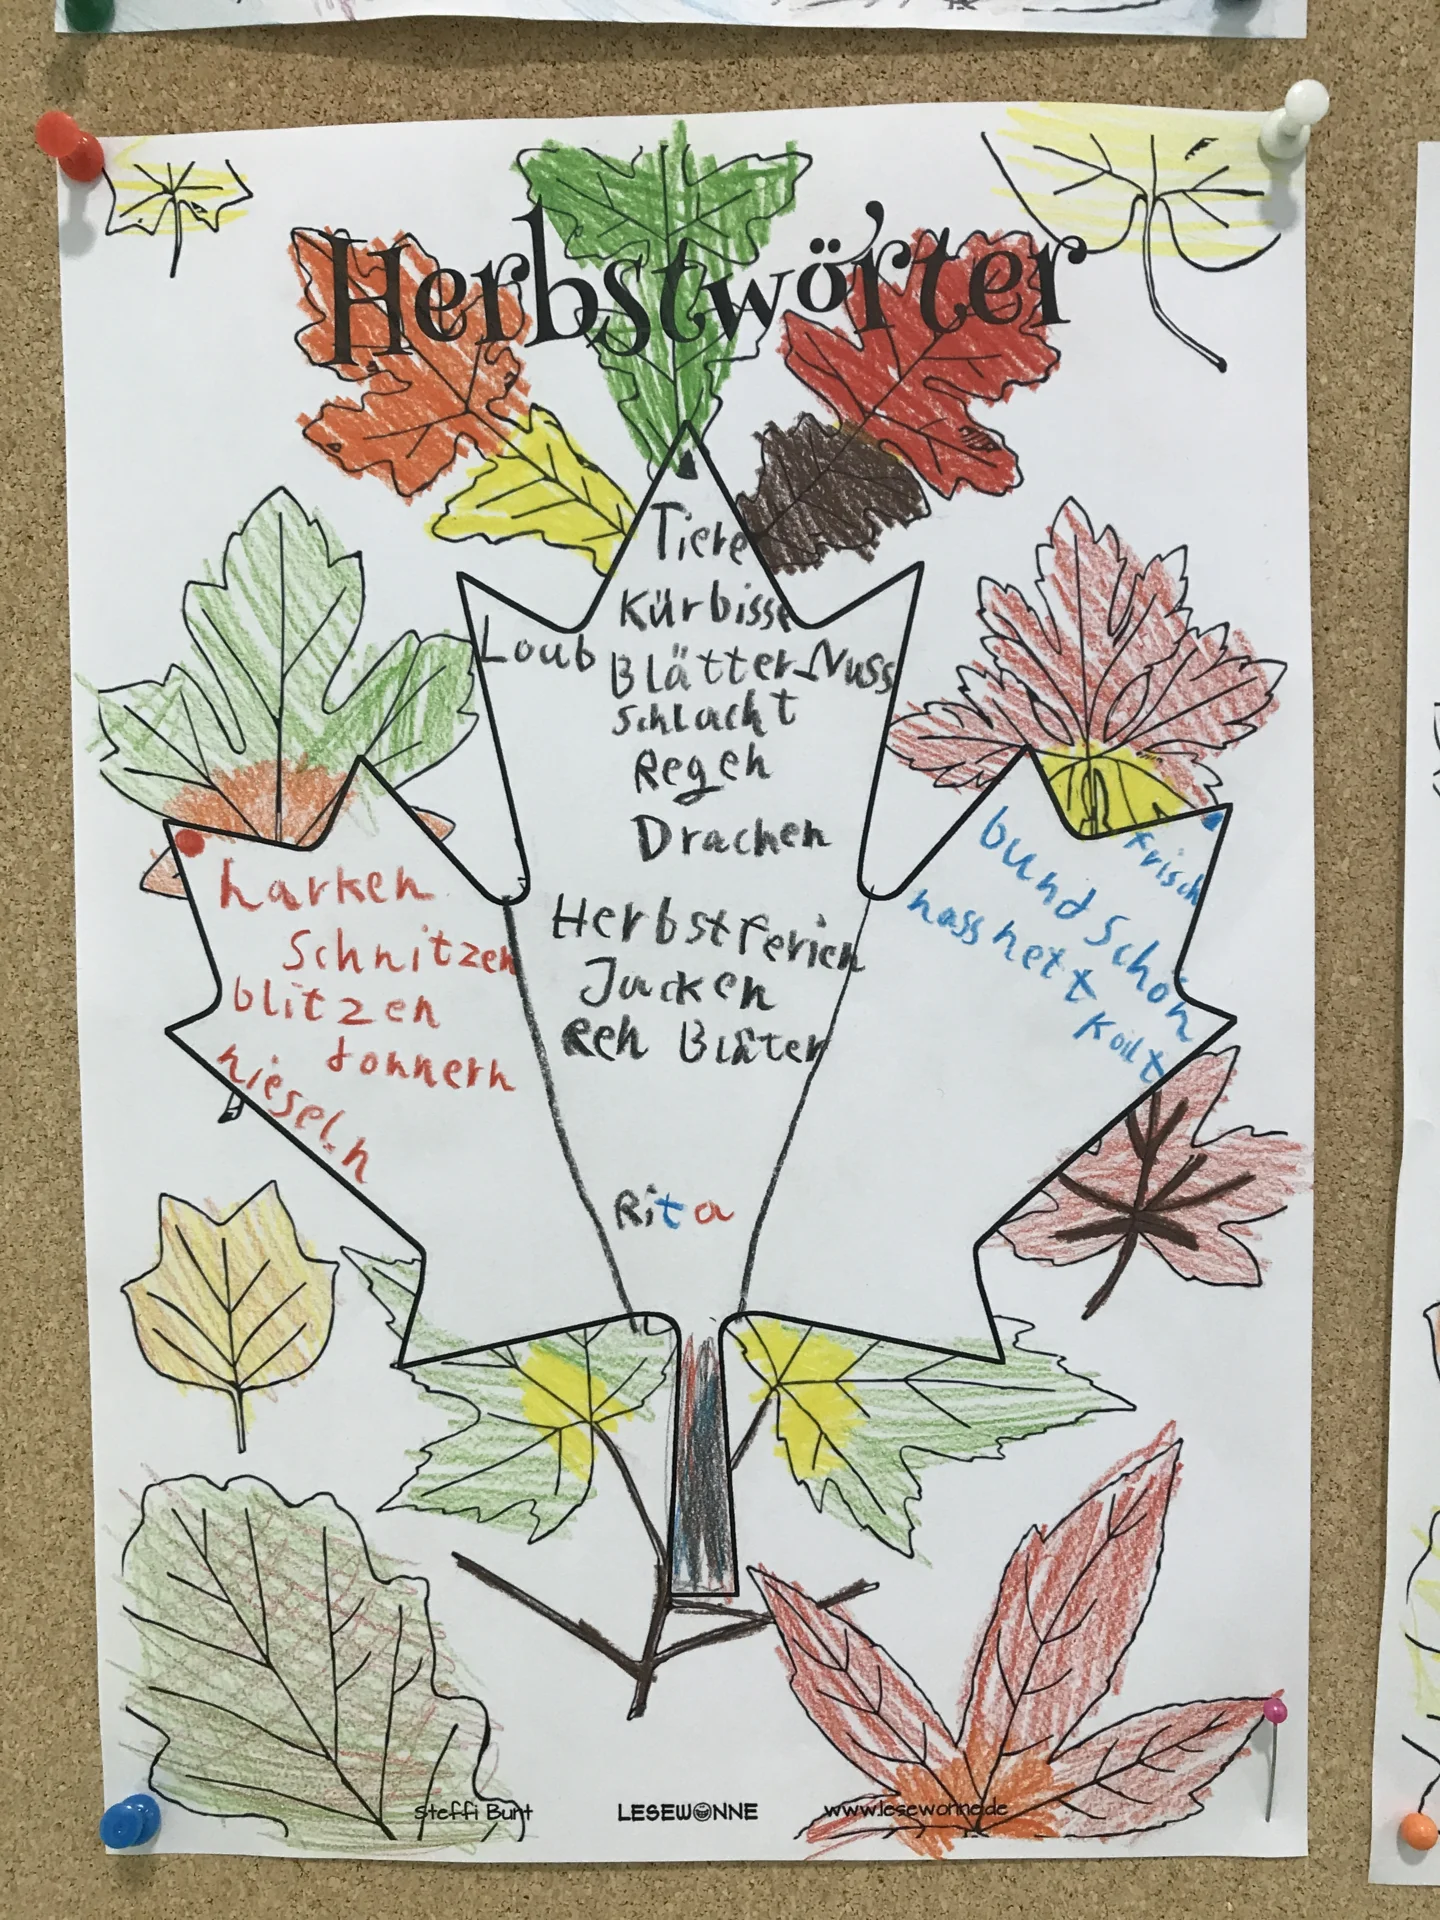 Herbstwörter
Tiere
Kürbisse
Loub
Blätter Nuss
Schlacht
Regen
Drachen
Herbstferien
Jacken
Reh Bläter
Rita
harken
Schnitzen
blitzen
donnern
nieseln
frisch
bund Schön
nass nett
Kallt
Steffi Bunt LESEWONNE www.lesewonne.de